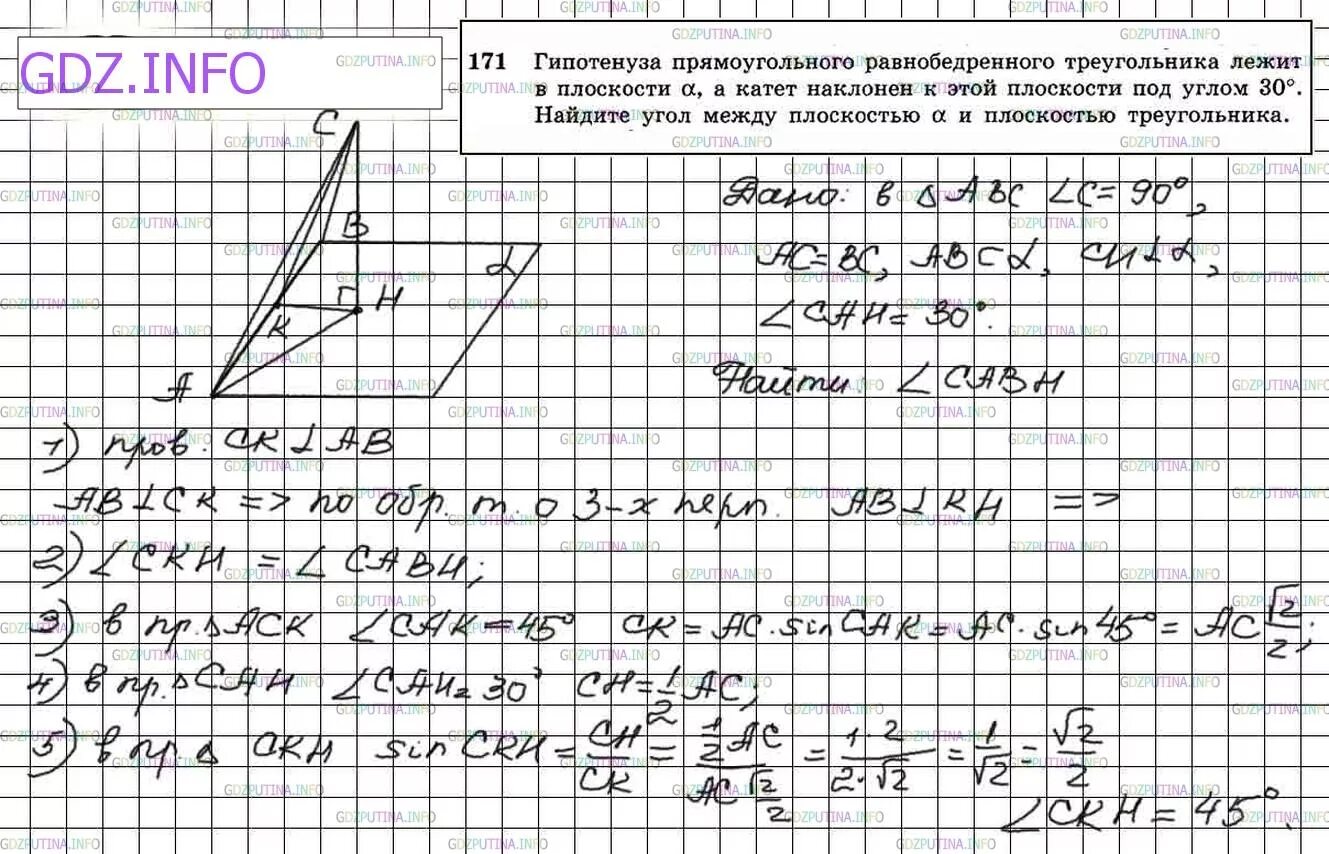 GDZ.INFO
171 Гипотенуза прямоугольного равнобедренного треугольника лежит
в плоскости α, а катет наклонен к этой плоскости под углом 30°.
Найдите угол между плоскостью α и плоскостью треугольника.
C
B
α
H
K
A
Дано: в △ ABC ∠C = 90°,
AC = BC, AB ⊂ α, CH ⊥ α,
∠CAH = 30°.
Найти ∠CABH
1) пров. CK ⊥ AB
AB ⊥ CK => по обр. т. о 3-х перп. AB ⊥ KH =>
2) ∠CKH = ∠CABH;
3) в пр. △ ACK ∠CAK = 45° CK = AC · sin CAK = AC · sin 45° = AC √2/2;
4) в пр. △ CAH ∠CAH = 30° CH = 1/2 AC;
5) в пр. △ CKH sin CKH = CH/CK = (1/2 AC)/(AC √2/2) = (1 · 2)/(2 · √2) = 1/√2 = √2/2
∠CKH = 45°.
GDZPUTINA.INFO